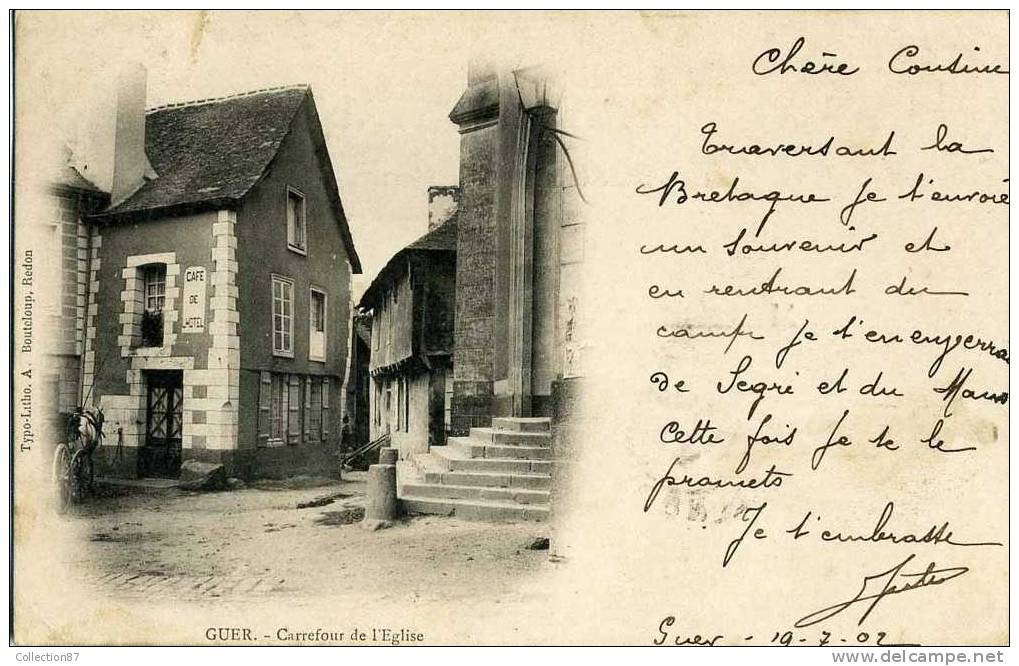 Chère Cousine
Traversant la
Bretagne Je t'envoie
un souvenir et
en rentrant du
camp Je t'en enverrai
de Segré et du Mans
Cette fois Je te le
promets
Je t'embrasse
Guer - 19-7-02
CAFÉ
DE
L'HOTEL
Typo-Litho. A. Bouteloup, Redon
GUER. - Carrefour de l'Eglise
Collection87
www.delcampe.net